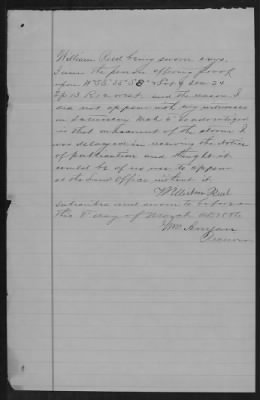 William Reed being sworn says.
I am the person offering proof
upon W½ SE & Lot 4 Sec 24
Tp 13 R 12 west and the reason I
did not appear with my witnesses
on Saturday Mch 6 as advertised
is that on account of the storm I
was delayed in receiving the Notice
of publication and thought it
would be of no use to appear
at the Land Office without it
William Reed
subscribed and sworn to before me
this 8 day of March AD 1886
Wm
Receiver